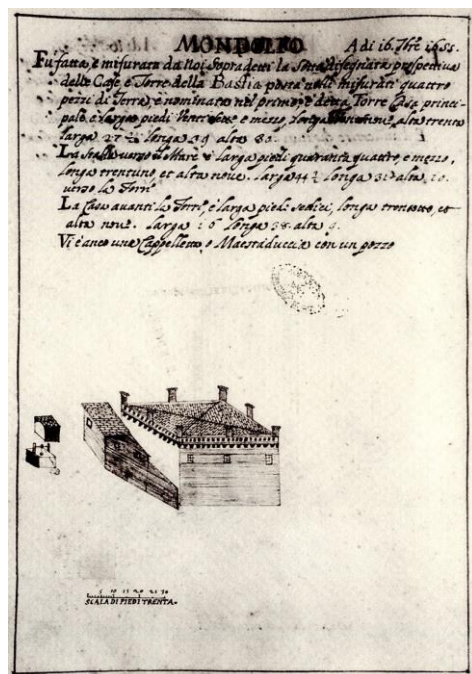 MONDOLFO A di 16. 7bre 1655.
Fu fatta, e misurata da noi sopradetti la sottodisegnata prospectiva
delle Case e Torre della Bastia posta nelli misurati quattro
pezzi di Terra, e nominato nel primo, e detta Torre Casa princi-
pale è larga piedi Venti sette e mezzo, longa alta trenta
larga 27 ½ longa 39 alta 30.
La Stalla verso il Mare è larga piedi quaranta quattro, e mezzo,
longa trentuno, et alta nove. larga 44 ½ longa 31 alta
verso la Torre
La Casa avanti la Torre, è larga piedi sedici, longa trentotto, et
alta nove. larga 16 longa 38 alta 9.
Vi è anco una Cappelletta, o Maestaduccia con un pozzo
5 10 15 20 25 30
SCALA DI PIEDI TRENTA.